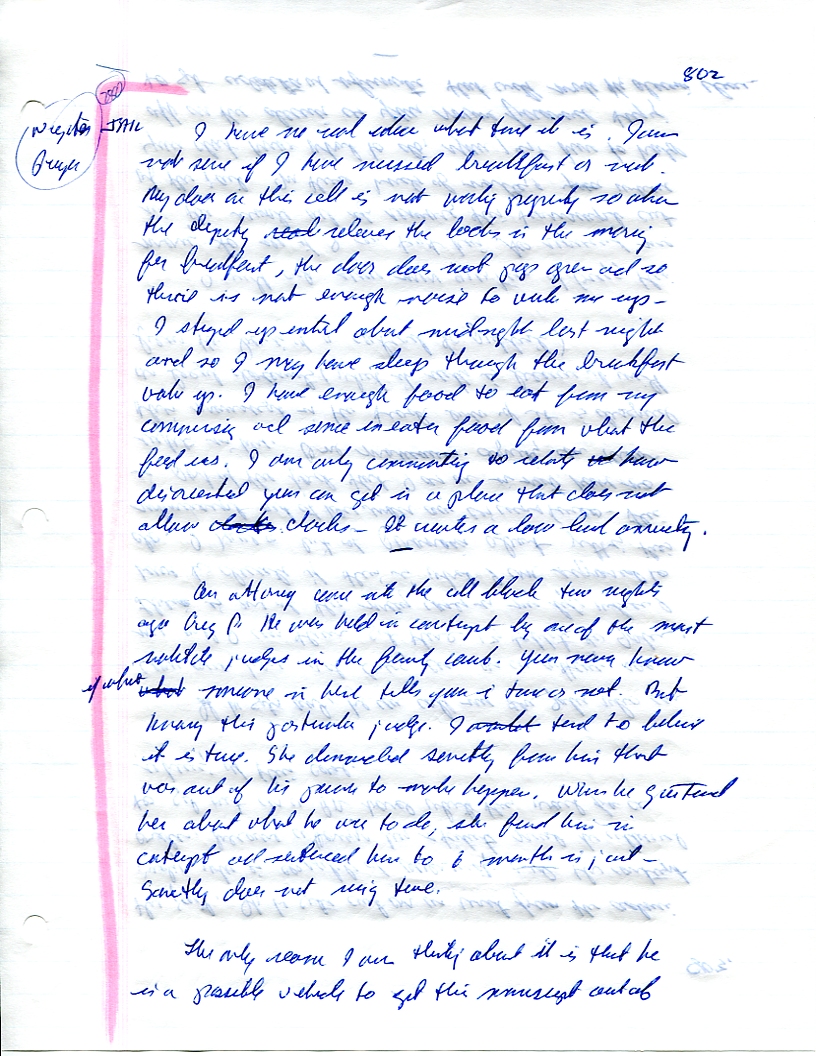 802
JAIL
I have no real idea what time it is. I am
not sure if I have missed breakfast or not.
My door on this cell is not working properly so when
the deputy releases the locks in the morning
for breakfast, the door does not pop open and so
there is not enough noise to wake me up -
I stayed up until about midnight last night
and so I may have sleep though the breakfast
wake up. I have enough food to eat from my
commissary and some food from what the
feed us. I am only commenting to relate how
disoriented you can get in a place that does not
allow clocks - It creates a low level anxiety.
An attorney came into the cell block two nights
ago Greg P. He was held in contempt by one of the most
judges in the family court. You never know
if what someone in here tells you is true or not. But
knowing this particular judge. I tend to believe
it is true. She demanded something from him that
was out of his power to make happen. When he questioned
her about what he was to do, she found him in
contempt and sentenced him to 6 months in jail -
Something does not ring true.
The only reason I am thinking about it is that he
is a possible vehicle to get this manuscript out of